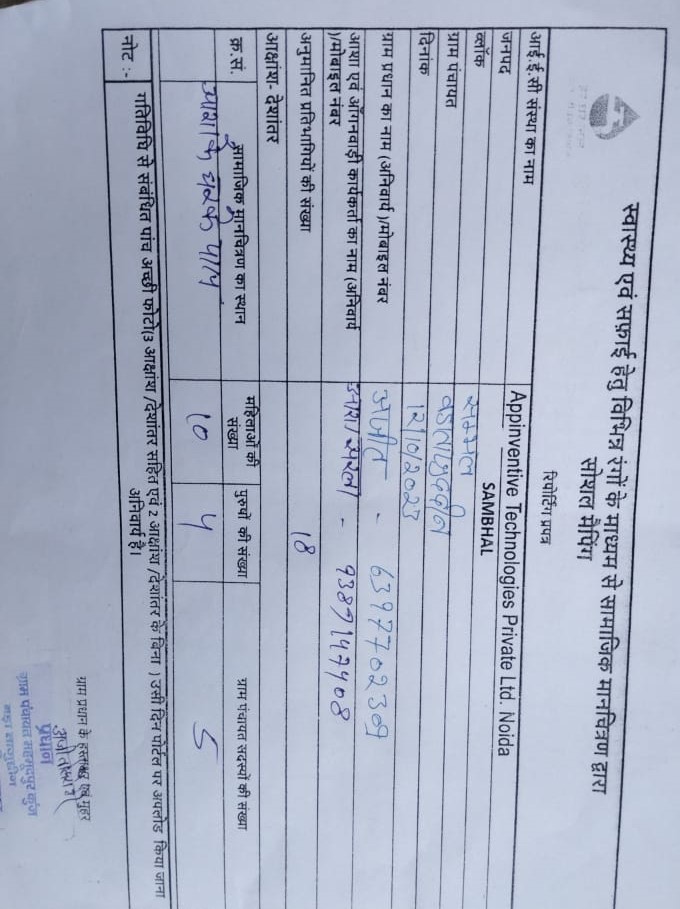 स्वास्थ्य एवं सफ़ाई हेतु विभिन्न रंगों के माध्यम से सामाजिक मानचित्रण द्वारा
सोशल मैपिंग
रिपोर्टिंग प्रपत्र
आई.ई.सी संस्था का नाम Appinventive Technologies Private Ltd. Noida
जनपद SAMBHAL
ब्लॉक सम्भल
ग्राम पंचायत
दिनांक 12/10/2023
ग्राम प्रधान का नाम (अनिवार्य )/मोबाइल नंबर अजीत - 6397702309
आशा एवं आँगनवाड़ी कार्यकर्ता का नाम (अनिवार्य
)/मोबाइल नंबर आशा सरला -
अनुमानित प्रतिभागियों की संख्या 18
आक्षांश- देशांतर
क्र.सं. सामाजिक मानचित्रण का स्थान महिलाओं की संख्या पुरुषों की संख्या ग्राम पंचायत सदस्यों की संख्या
आशा के घर के पास 10 4 5
नोट :- गतिविधि से संबंधित पांच अच्छी फोटो(3 आक्षांश /देशांतर सहित एवं 2 आक्षांश /देशांतर के बिना ) उसी दिन पोर्टल पर अपलोड किया जाना
अनिवार्य है।
ग्राम प्रधान के हस्ताक्षर एवं मुहर
प्रधान